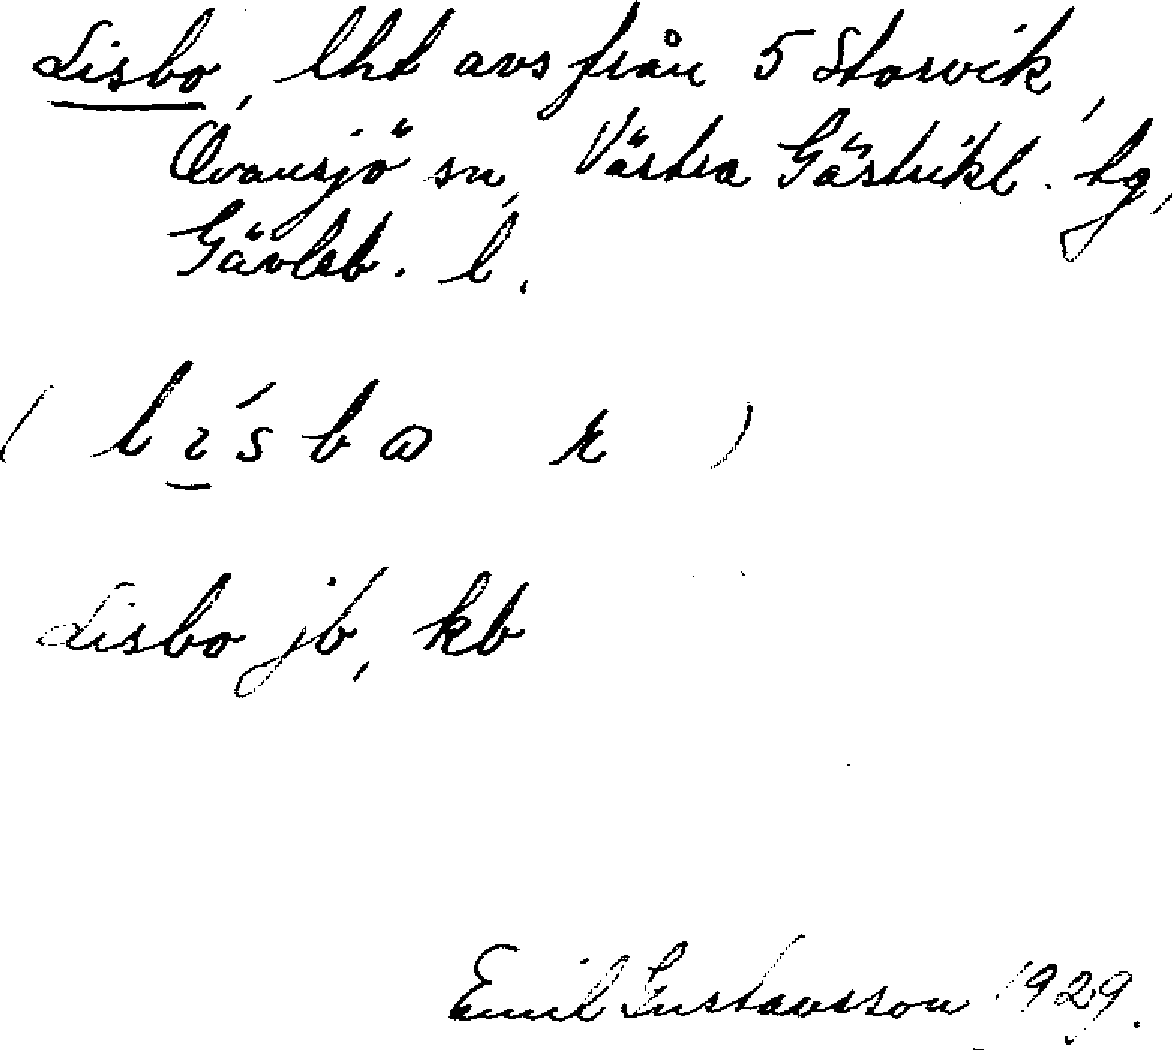 Lisbo, lht avs från 5 Storvik,
Ovansjö sn, Västra Gästrikl. tg,
Gävleb. l.
Lisbo jb, kb
Emil Gustavsson 1929.